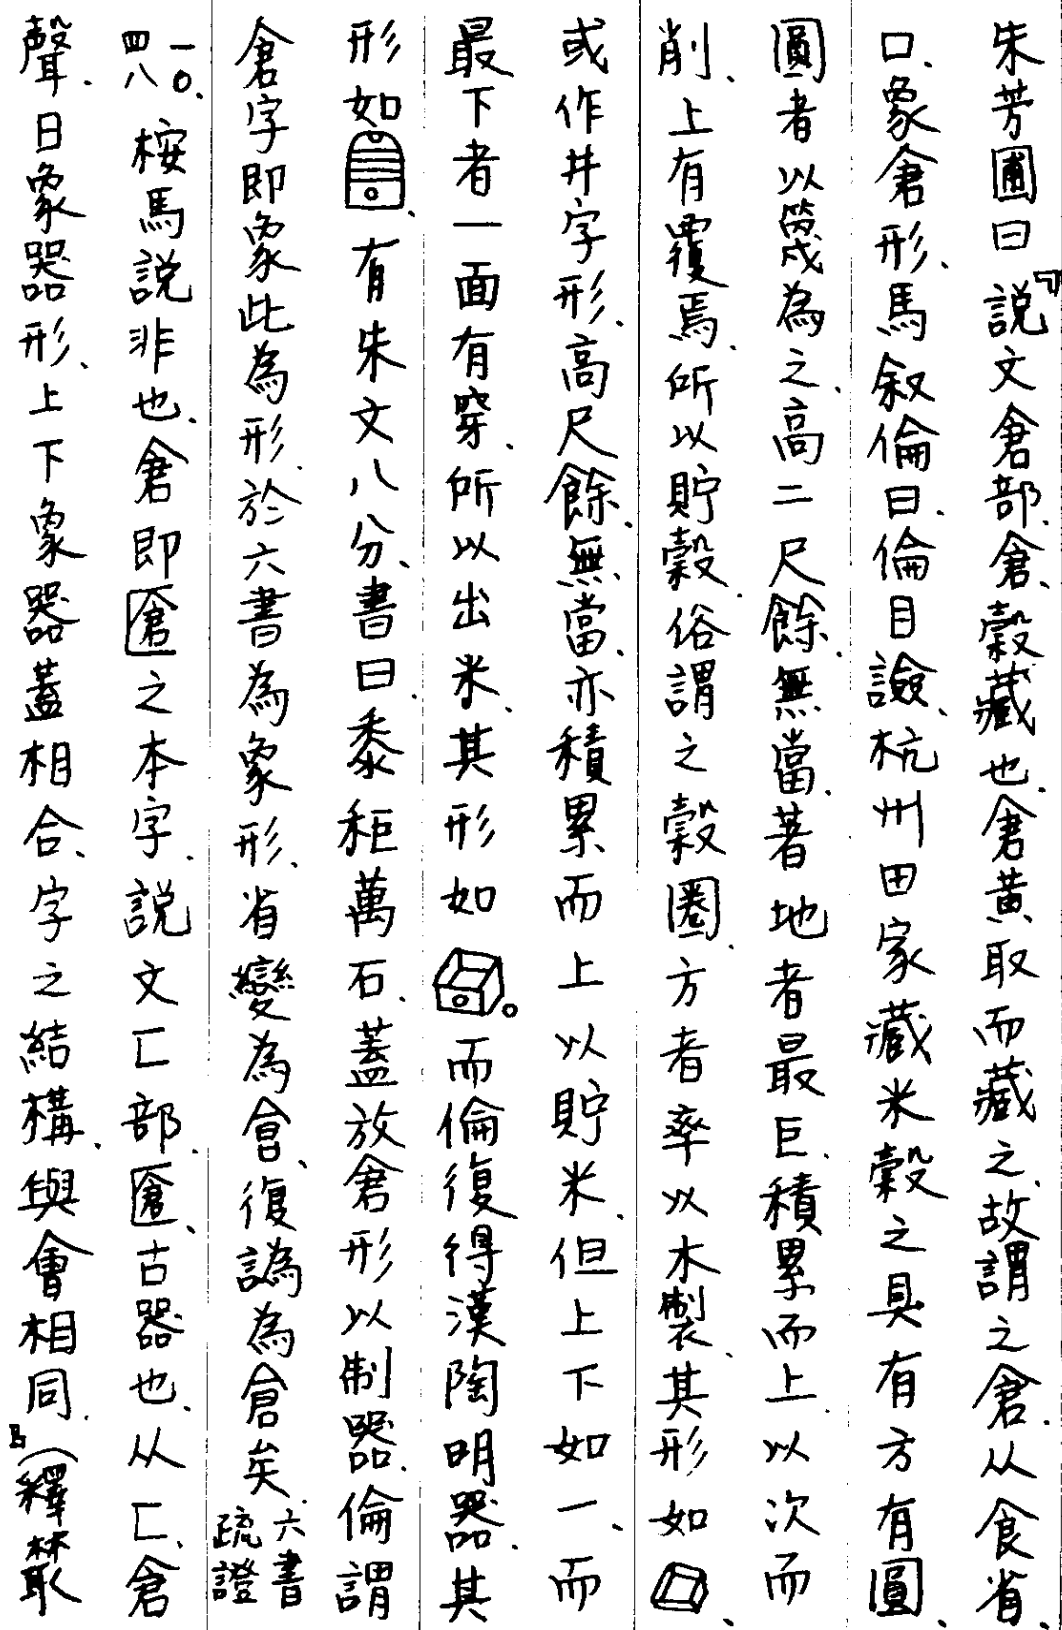 朱芳圃曰「説文倉部、倉、穀藏也、倉黃取而藏之、故謂之倉、从食省、
口、象倉形、馬叙倫曰、倫目譣、杭州田家藏米穀之具、有方有圓、
圓者以篾為之、高二尺餘、無當、著地者最巨、積累而上、以次而
削、上有覆焉、所以貯穀、俗謂之穀圈、方者率以木製、其形如、
或作井字形、高尺餘、無當、亦積累而上以貯米、但上下如一、而
最下者一面有穿、所以出米、其形如。而倫復得漢陶明器、其
形如、有朱文八分、書曰、黍秬萬石、蓋放倉形以制器、倫謂
倉字即象此為形、於六書為象形、省變為倉、復譌為倉矣、六書疏證
一〇、四八 桉馬説非也、倉即匲之本字、説文匚部、匲、古器也、从匚、倉
聲、日象器形、上下象器蓋相合、字之結構、與會相同、」（釋叢